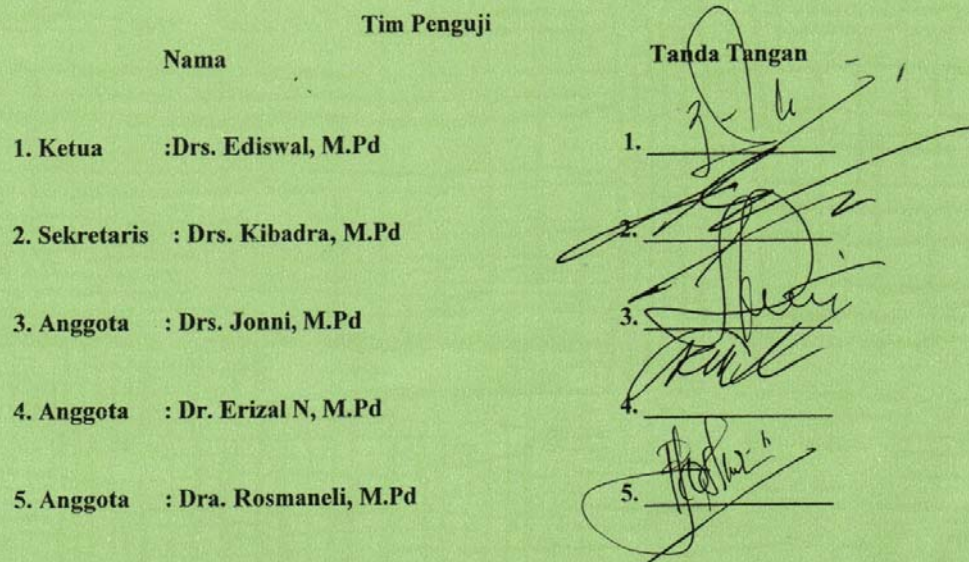 Tim Penguji
Nama Tanda Tangan
1. Ketua :Drs. Ediswal, M.Pd 1.
2. Sekretaris : Drs. Kibadra, M.Pd 2.
3. Anggota : Drs. Jonni, M.Pd 3.
4. Anggota : Dr. Erizal N, M.Pd 4.
5. Anggota : Dra. Rosmaneli, M.Pd 5.